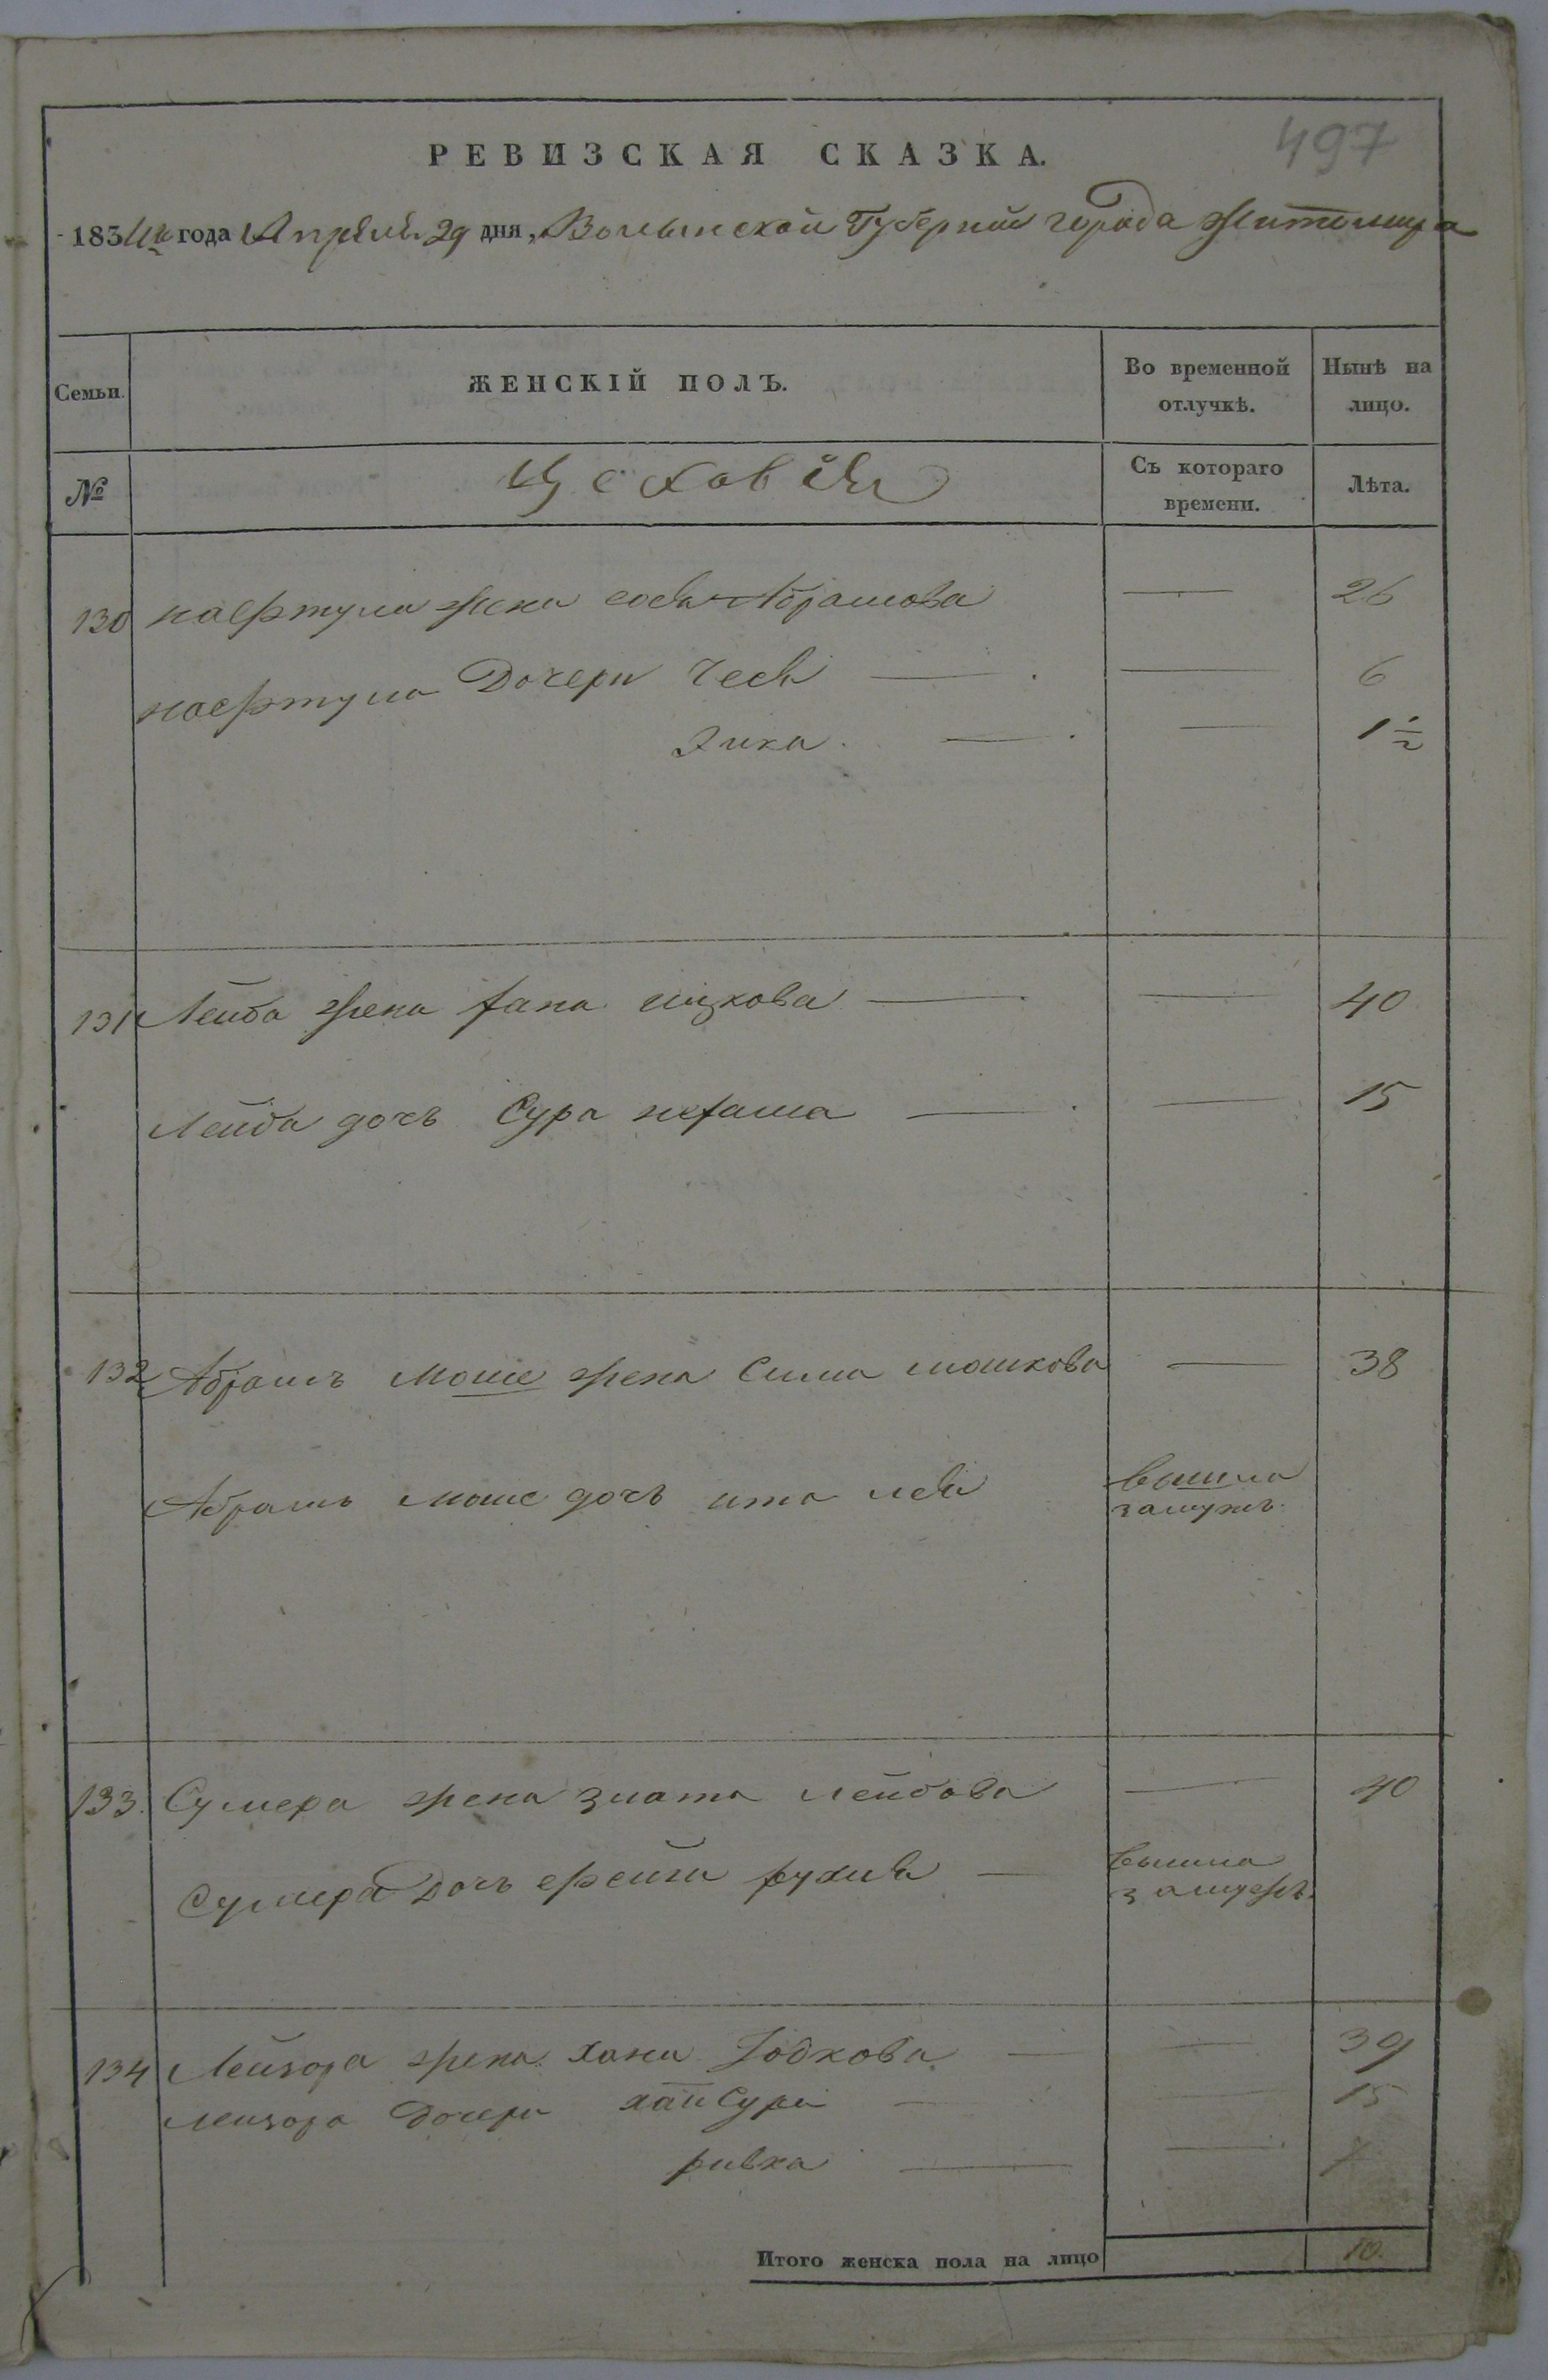 497
РЕВИЗСКАЯ СКАЗКА.
1834 года Апреля 29 дня, Волынской Губернии города Житомира
Семьи. ЖЕНСКІЙ ПОЛЪ. Во временной отлучкѣ. Нынѣ на лицо.
№ Съ котораго времени. Лѣта.
Цеховія
130 нафтула жена Абрамова — 26
нафтула Дочери Чеся — — 6
Зика. — — 1 1/2
131 Лейба жена хана ицкова — — 40
Лейба дочь Сура нехама — — 15
132 Абрамъ Моше жена Сима мошкова — 38
Абрамъ моше дочь ита лея вышла замужъ.
133. Сумера жена злата лейбова — 40
Сумера Дочь фейга рухля — вышла замужъ.
134 Лейзора жена хана — — 39
Лейзора Дочери хая Сура — — 15
ривка — — 7
Итого женска пола на лицо 10.